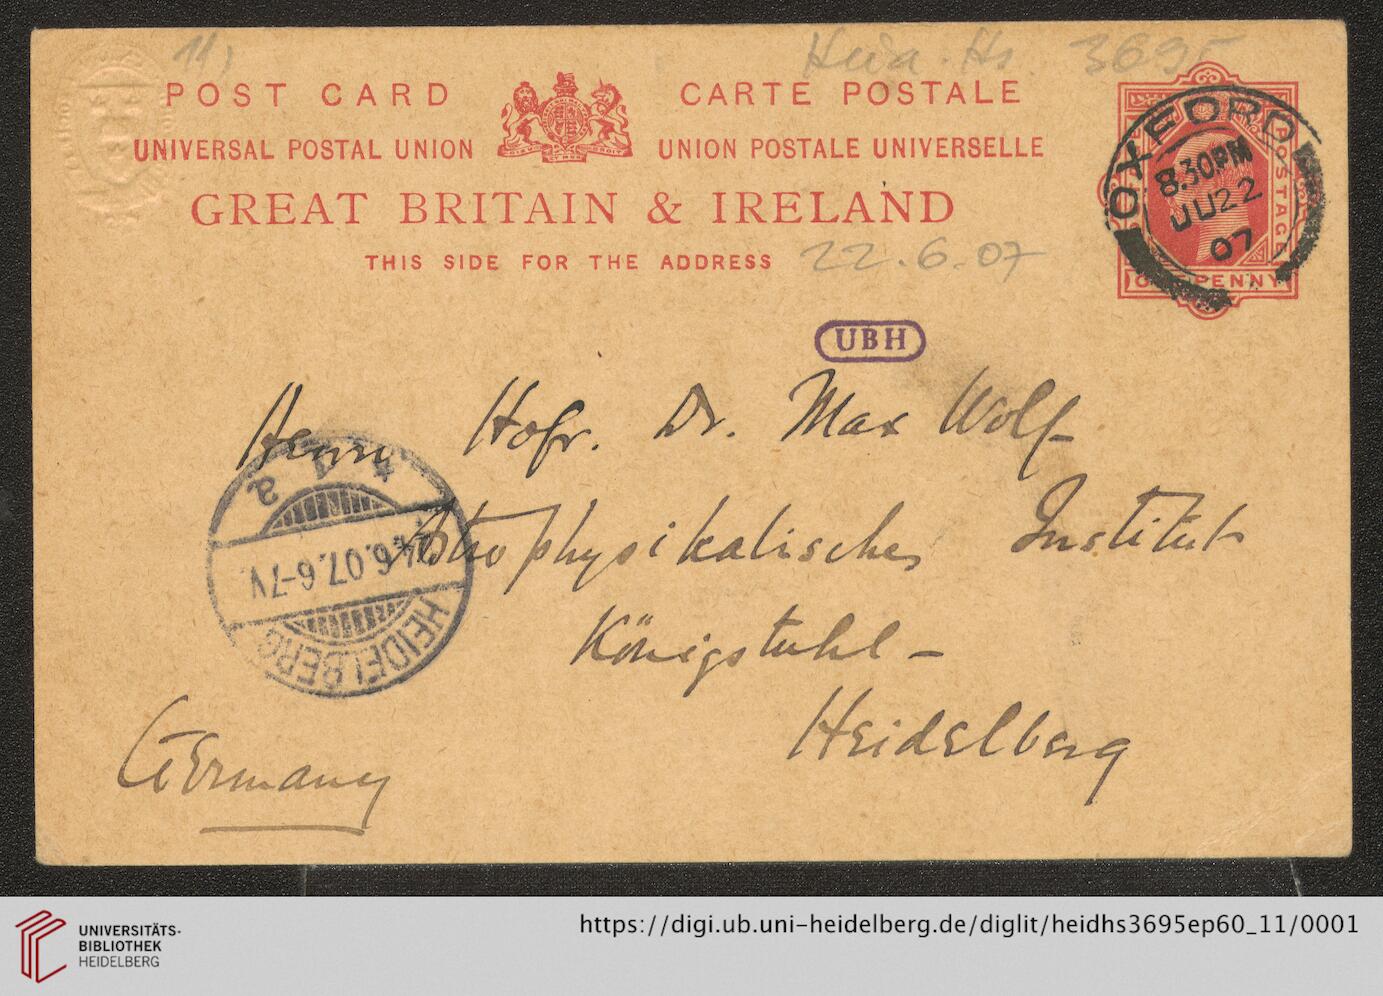 11)
Heid. Hs. 3695
POST CARD CARTE POSTALE
UNIVERSAL POSTAL UNION UNION POSTALE UNIVERSELLE
GREAT BRITAIN & IRELAND
THIS SIDE FOR THE ADDRESS
22.6.07
POSTAGE
ONE PENNY
OXFORD
8.30PM
JU 22
07
UBH
Herrn Hofr. Dr. Max Wolf
Astrophysikalisches Institut
Königstuhl –
Heidelberg
Germany
HEIDELBERG
24.6.07.6-7V.
* 1 a
UNIVERSITÄTS-
BIBLIOTHEK
HEIDELBERG
https://digi.ub.uni-heidelberg.de/diglit/heidhs3695ep60_11/0001